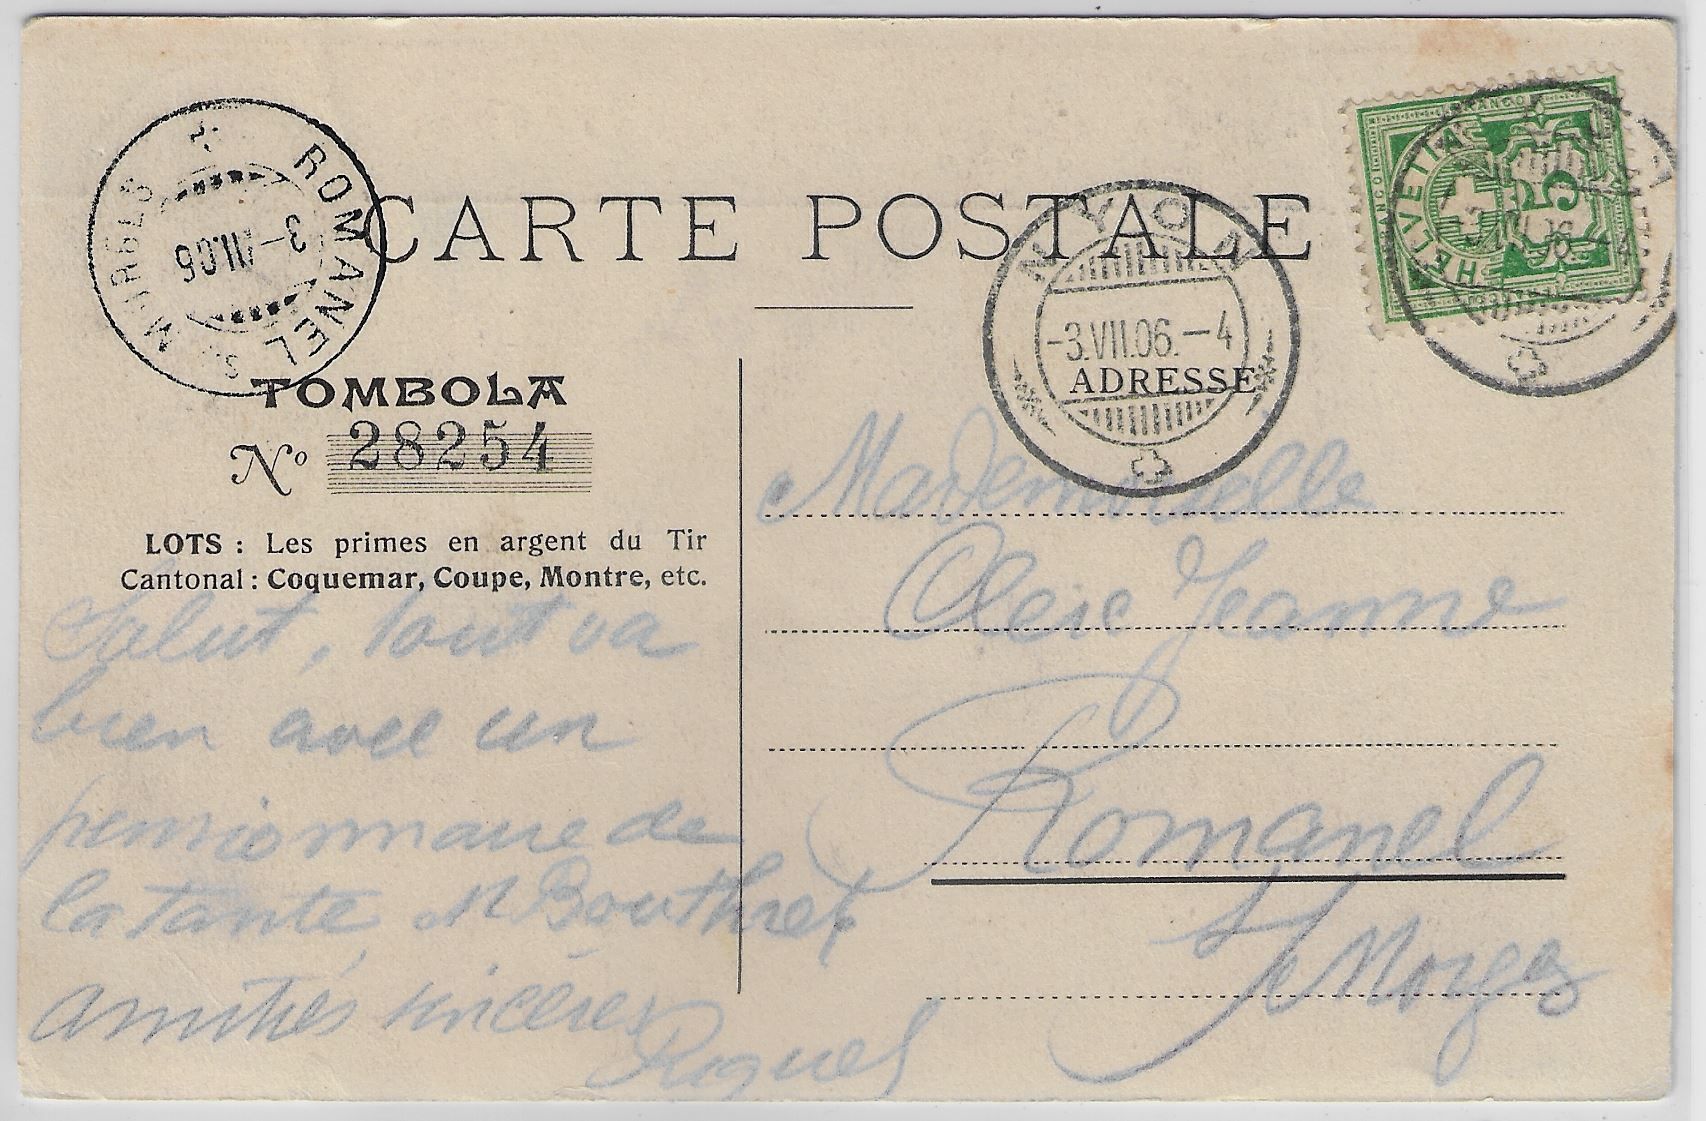 CARTE POSTALE
ROMANEL S. MORGES
3.VII.06
NYON
-3.VII.06.-4
HELVETIA
FRANCO
5
TOMBOLA
No 28254
LOTS : Les primes en argent du Tir
Cantonal : Coquemar, Coupe, Montre, etc.
Salut, tout va
bien avec un
pensionnaire de
la tante, M
amitiés sincères
ADRESSE
Mademoiselle
Jeanne
Romanel
s/ Morges